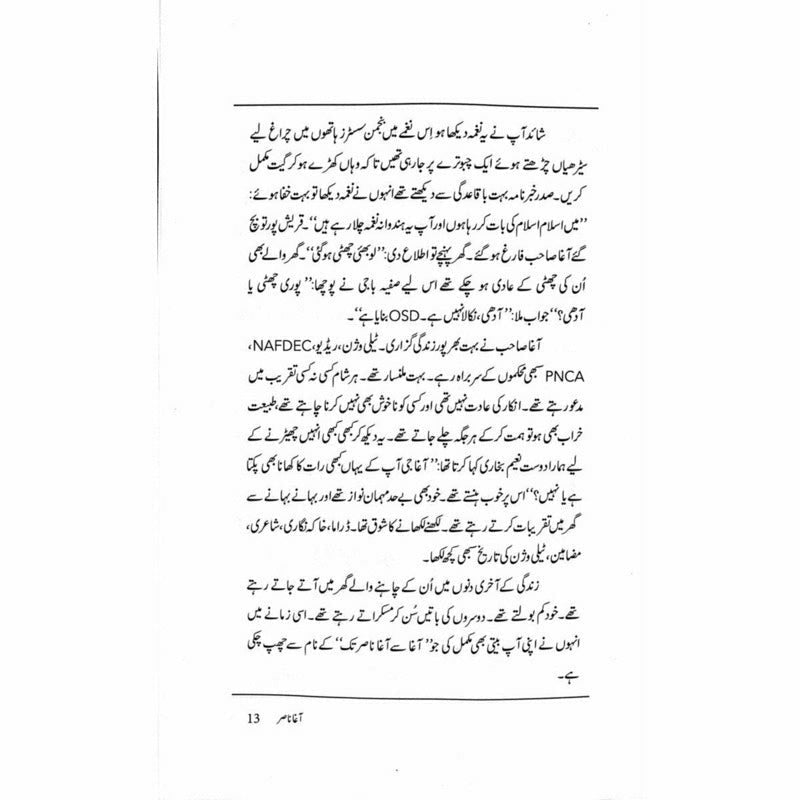 شائد آپ نے یہ نغمہ دیکھا ہو اِس نغمے میں بنجمن سسٹرز ہاتھوں میں چراغ لیے
سیڑھیاں چڑھتے ہوئے ایک چبوترے پر جا رہی تھیں تاکہ وہاں کھڑے ہو کر گیت مکمل
کریں۔ صدر خبرنامہ بہت باقاعدگی سے دیکھتے تھے انہوں نے نغمہ دیکھا تو بہت خفا ہوئے:
”میں اسلام اسلام کی بات کر رہا ہوں اور آپ یہ ہندوانہ نغمہ چلا رہے ہیں“۔ قریش پور تو بچ
گئے آغا صاحب فارغ ہو گئے۔ گھر پہنچے تو اطلاع دی: ”لو بھئی چھٹی ہو گئی“۔ گھر والے بھی
اُن کی چھٹی کے عادی ہو چکے تھے اس لیے صفیہ باجی نے پوچھا: ”پوری چھٹی یا
آدھی؟“ جواب ملا: ”آدھی، نکالا نہیں ہے۔ OSD بنایا ہے“۔
آغا صاحب نے بہت بھرپور زندگی گزاری۔ ٹیلی وژن، ریڈیو، NAFDEC،
PNCA سبھی محکموں کے سربراہ رہے۔ بہت ملنسار تھے۔ ہر شام کسی نہ کسی تقریب میں
مدعو رہتے تھے۔ انکار کی عادت نہیں تھی اور کسی کو ناخوش بھی نہیں کرنا چاہتے تھے، طبیعت
خراب بھی ہو تو ہمت کر کے ہر جگہ چلے جاتے تھے۔ یہ دیکھ کر کبھی کبھی انہیں چھیڑنے کے
لیے ہمارا دوست نعیم بخاری کہا کرتا تھا: ”آغا جی آپ کے یہاں کبھی رات کا کھانا بھی پکتا
ہے یا نہیں؟“ اس پر خوب ہنستے تھے۔ خود بھی بے حد مہمان نواز تھے اور بہانے بہانے سے
گھر میں تقریبات کرتے رہتے تھے۔ لکھنے لکھانے کا شوق تھا۔ ڈراما، خاکہ نگاری، شاعری،
مضامین، ٹیلی وژن کی تاریخ سبھی کچھ لکھا۔
زندگی کے آخری دنوں میں اُن کے چاہنے والے گھر میں آتے جاتے رہتے
تھے۔ خود کم بولتے تھے۔ دوسروں کی باتیں سُن کر مسکراتے رہتے تھے۔ اسی زمانے میں
انہوں نے اپنی آپ بیتی بھی مکمل کی جو ”آغا سے آغا ناصر تک“ کے نام سے چھپ چکی
ہے۔
آغا ناصر 13